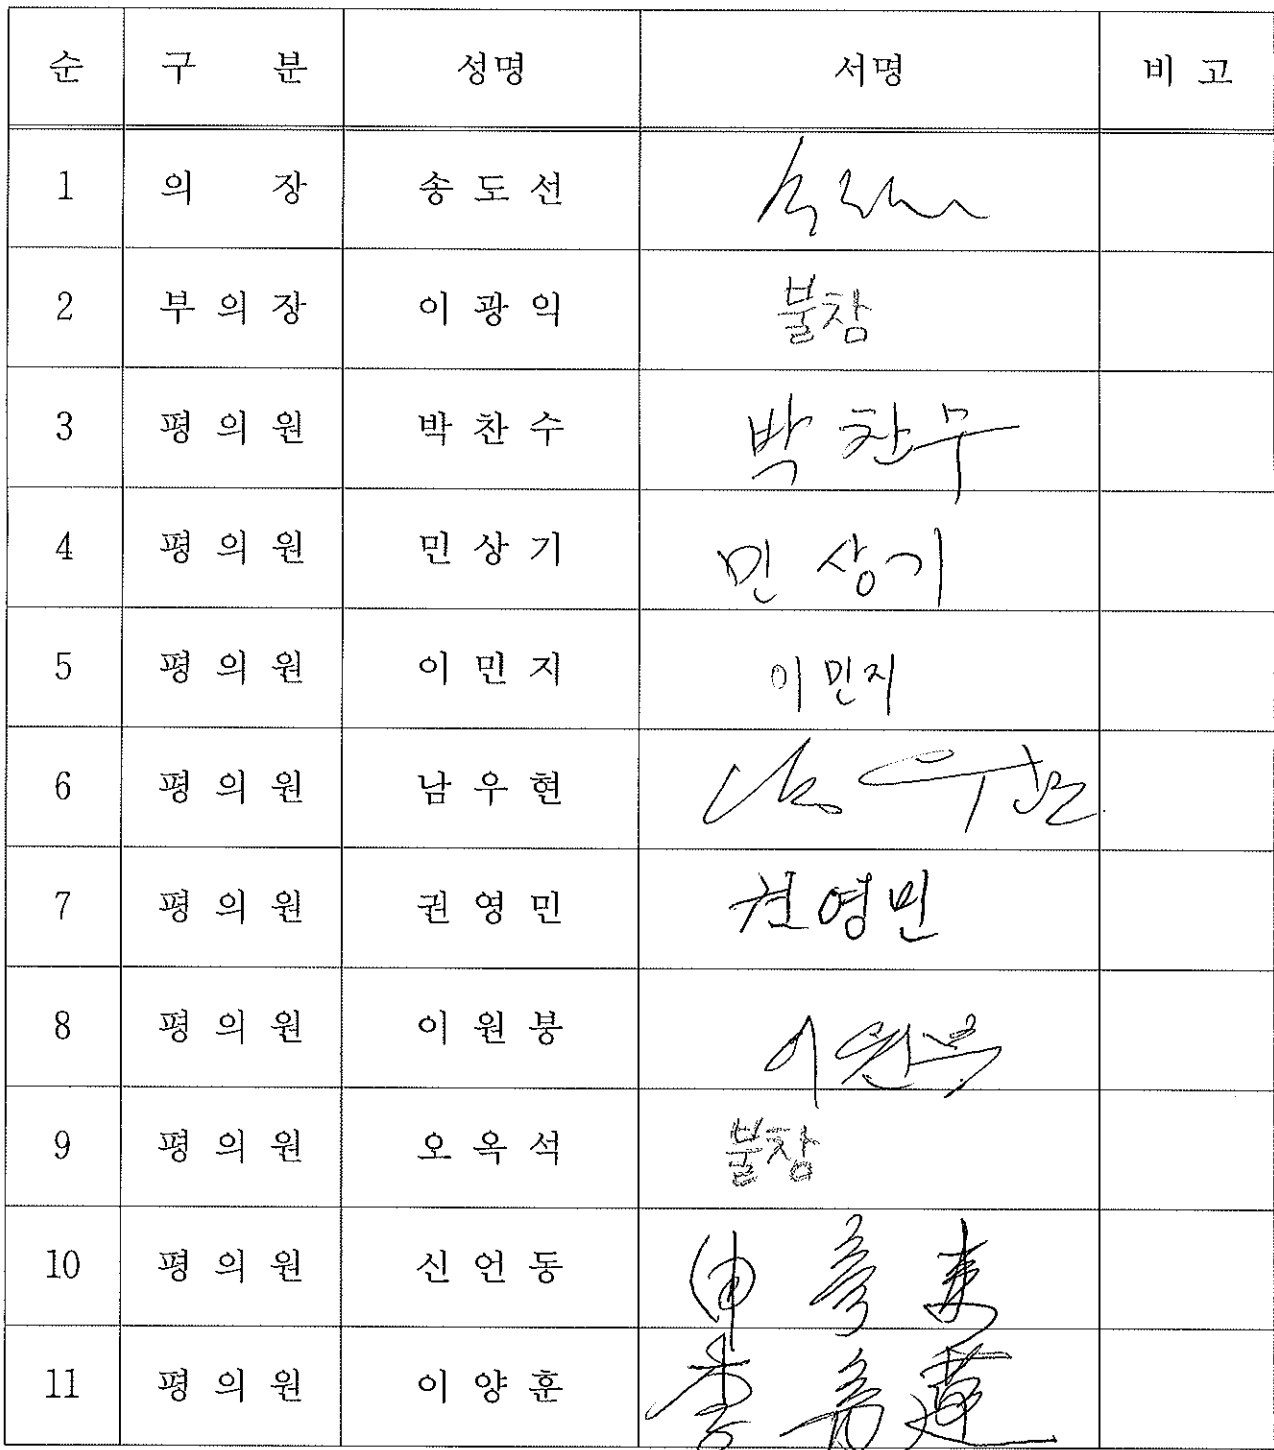 순 구 분 성명 서명 비 고
1 의 장 송 도 선
2 부 의 장 이 광 익 불참
3 평 의 원 박 찬 수 박 찬수
4 평 의 원 민 상 기 민 상기
5 평 의 원 이 민 지 이 민지
6 평 의 원 남 우 현 남 우현
7 평 의 원 권 영 민 권영민
8 평 의 원 이 원 봉 이원봉
9 평 의 원 오 옥 석 불참
10 평 의 원 신 언 동
11 평 의 원 이 양 훈